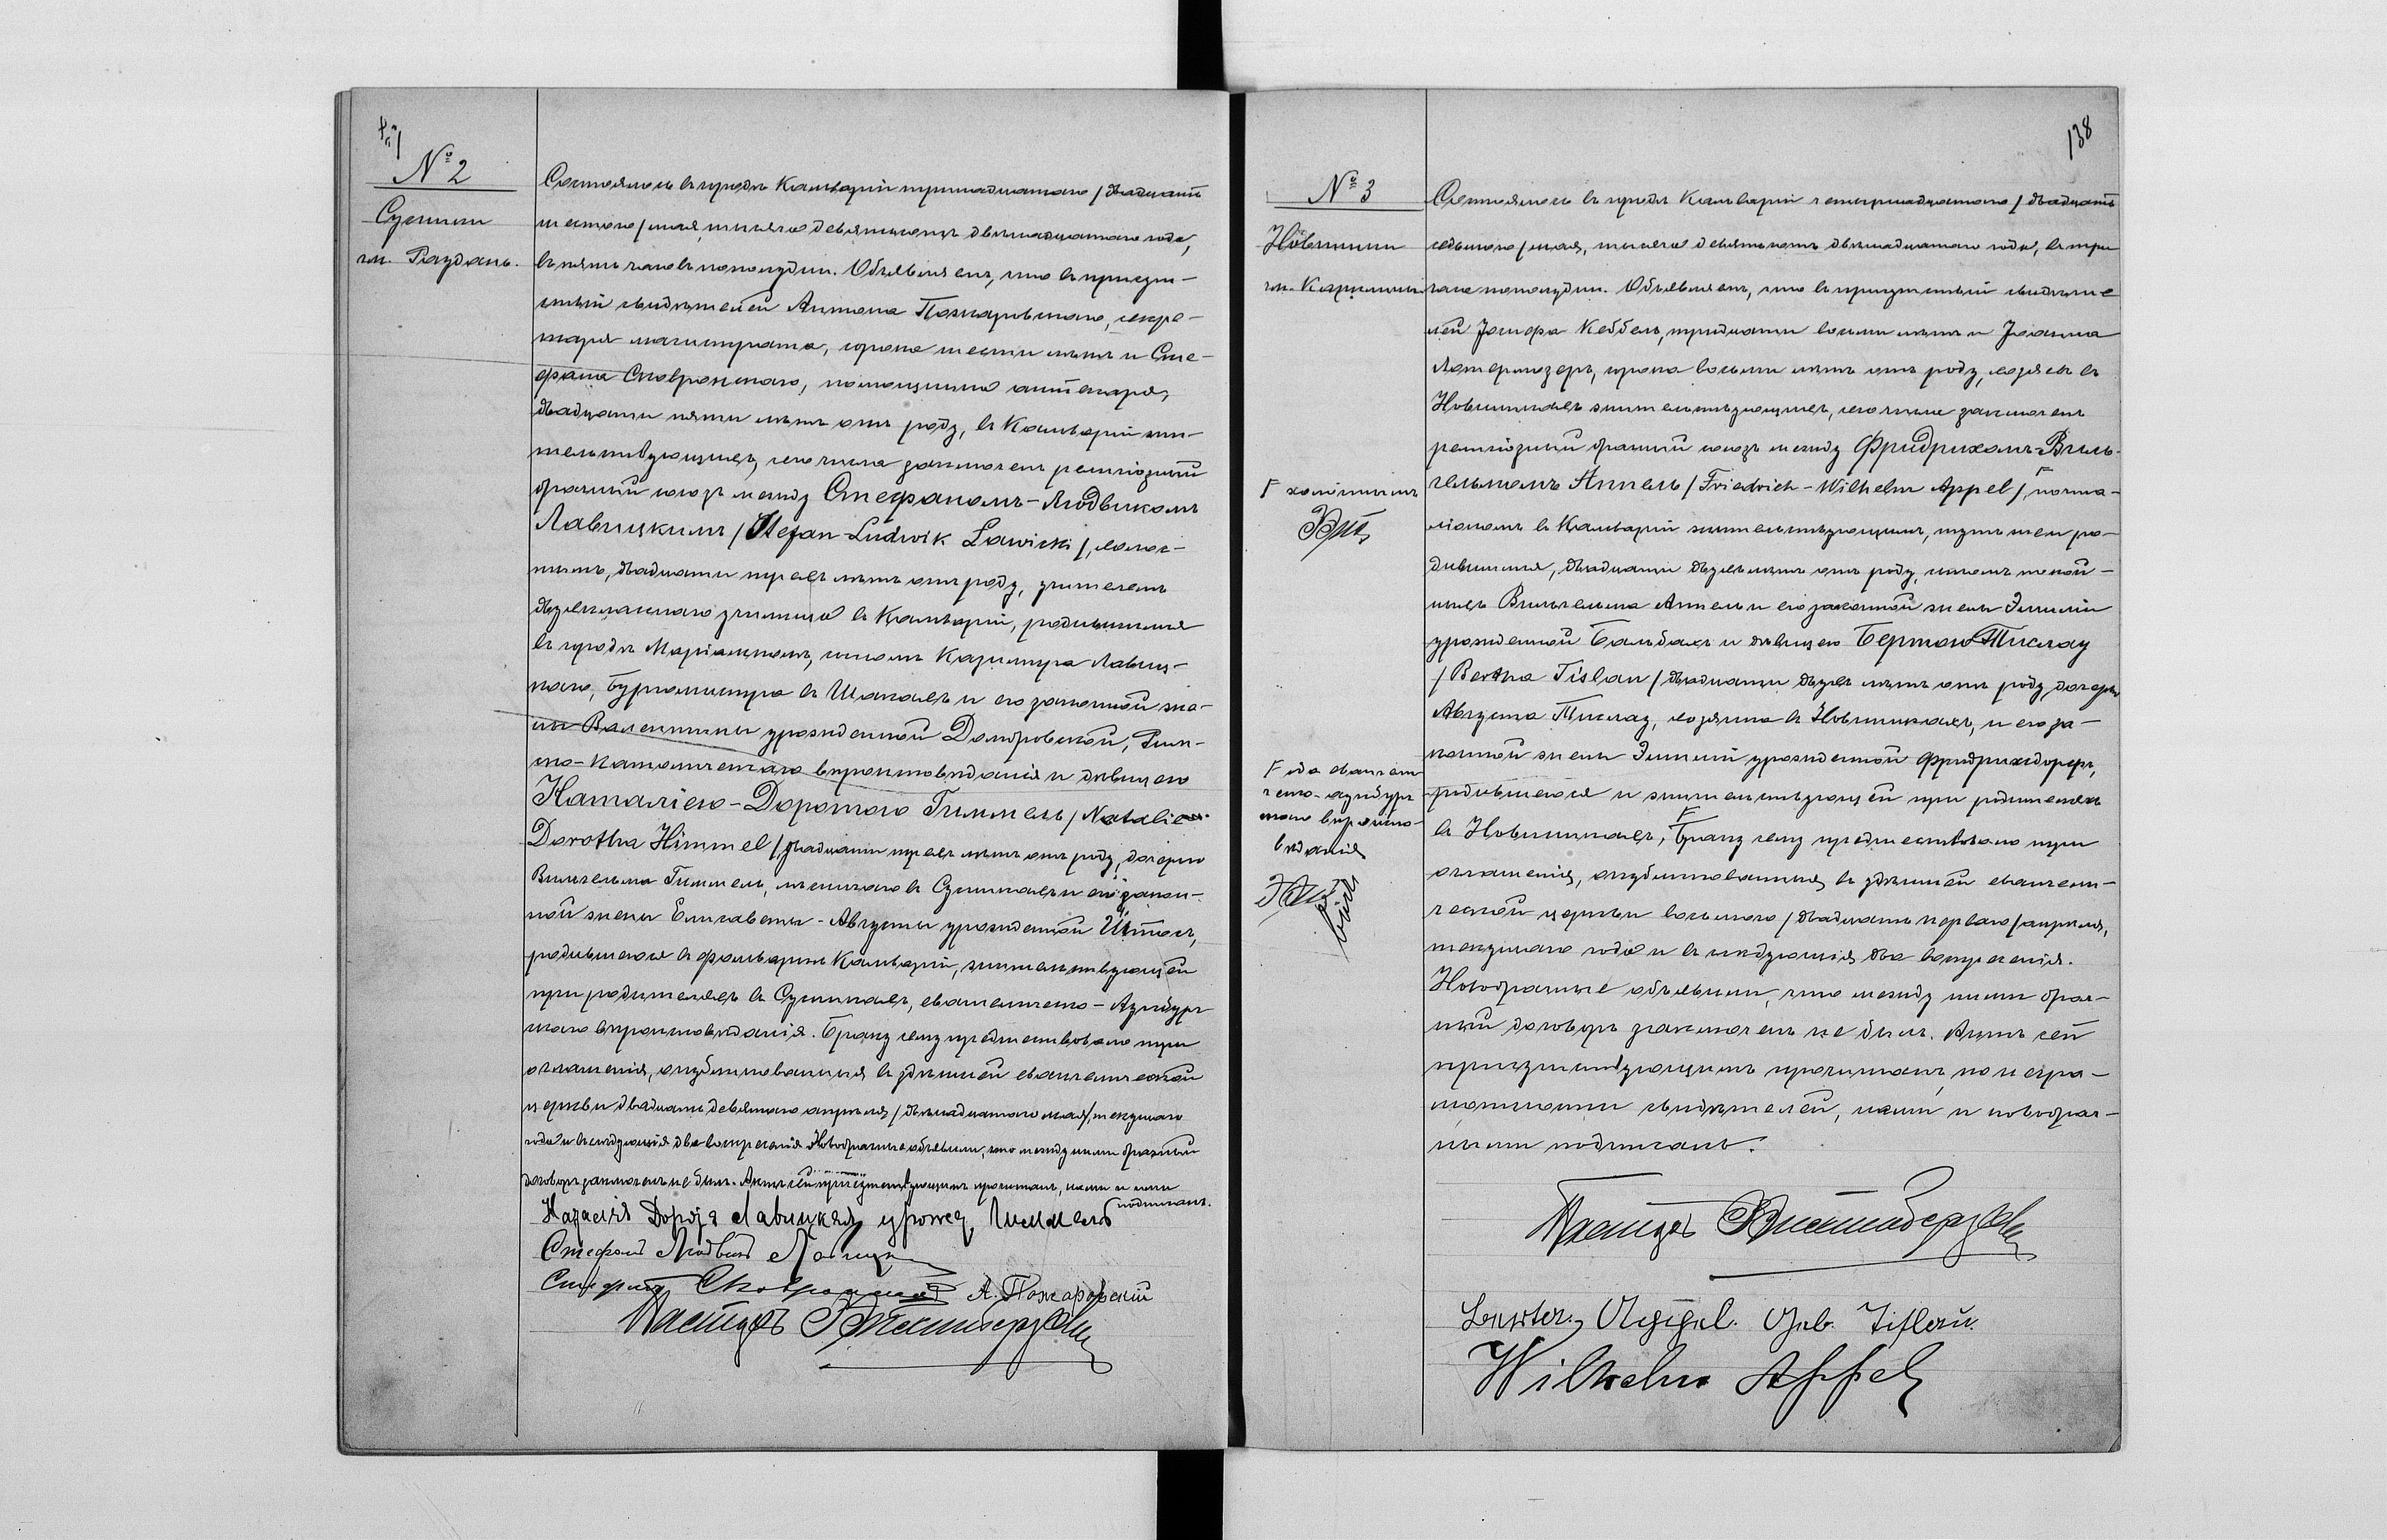 № 2
Суткили
гм. Раудань.
Состоялось въ городѣ Кальваріи тринадцатаго / двадцать
шестого / мая, тысяча девятьсотъ двѣнадцатаго года,
въ пять часовъ пополудни. Объявляемъ, что въ присут-
ствіи свидѣтелей Антона Пожаровскаго, секре-
таря магистрата, сорока шести лѣтъ и Сте-
фана Сковронскаго, помощника аптекаря,
двадцати пяти лѣтъ отъ роду, въ Кальваріи жи-
тельствующихъ, сего числа заключенъ религіозный
брачный союзъ между Стефаномъ-Людвикомъ
Лавицкимъ / Stefan-Ludwik Ławicki /, холос-
тымъ, двадцати трехъ лѣтъ отъ роду, учителемъ
двухкласснаго училища въ Кальваріи, родившимся
въ городѣ Маріамполѣ, сыномъ Казимира Лавиц-
каго, бургомистра въ Шакахъ и его законной же-
ны Валентины урожденной Домбровской, Рим-
ско-католическаго вѣроисповѣданія и дѣвицею
Наталіею-Доротою Гиммель / Natalie
Dorothea Himmel /, двадцати трехъ лѣтъ отъ роду, дочерью
Вильгельма Гиммель, въ и его закон-
ной жены Елисаветы-Августы урожденной
родившеюся въ фольваркѣ Кальваріи, жительствующей
при родителяхъ въ евангелическо-Аугсбург
скаго вѣроисповѣданія. Браку сему предшествовали три
оглашенія, опубликованныя въ здѣшней евангелической
церкви двадцать девятаго апрѣля / двѣнадцатаго мая / текущаго
года и въ слѣдующія два воскресенія. Новобрачные объявили, что между ними брачный
договоръ заключенъ не былъ. Актъ сей присутствующимъ прочитанъ, нами и ими
подписанъ.
Наталія Дороѳея Лавицкая урожд. Гиммель
Стефанъ Людвикъ Лавицки
Стефанъ Сковронскій А. Пожаровскій
Пасторъ
138
№ 3
Новинники
гм.
Состоялось въ городѣ Кальваріи четырнадцатаго / двадцать
седьмого / мая, тысяча девятьсотъ двѣнадцатаго года, въ три
часа пополудни. Объявляемъ, что въ присутствіи свидѣте
лей Іосифа Кеббель, тридцати восьми лѣтъ и Іоанна
сорока восьми лѣтъ отъ роду, хозяевъ въ
Новинникахъ жительствующихъ, сего числа заключенъ
религіозный брачный союзъ между Фридрихомъ-Виль-
гельмомъ Аппель / Friedrich-Wilhelm Appel /, F почта-
ліономъ въ Кальваріи жительствующимъ, тутъ же ро-
дившимся, двадцати двухъ лѣтъ отъ роду, сыномъ покой-
ныхъ Вильгельма Аппель и его законной жены Эмиліи
урожденной Бальбахъ и дѣвицею Бертою Тислау
/ Bertha Tislau / двадцати двухъ лѣтъ отъ роду, дочерью
Августа Тислау, хозяина въ Новинникахъ, и его за-
конной жены Эмиліи урожденной Фридрихсдорфъ,
родившеюся и жительствующей при родителяхъ
въ Новинникахъ, F Браку сему предшествовали три
оглашенія, опубликованныя въ здѣшней евангели-
ческой церкви восьмого / двадцать перваго / апрѣля,
текущаго года и въ слѣдующія два воскресенія.
Новобрачные объявили, что между ними брач-
ный договоръ заключенъ не былъ. Актъ сей
присутствующимъ прочитанъ, по негра-
мотности свидѣтелей, нами и новобрач-
ными подписанъ.
F холостымъ
F оба евангели
ческо-аугсбург
скаго вѣроиспо-
вѣданія
Пасторъ
Appel. Geb. Tislau.
Wilhelm Appel